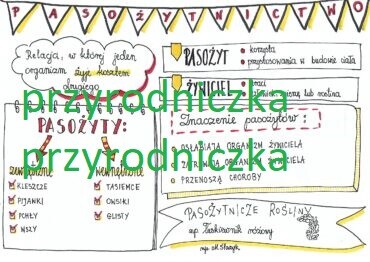 PASOŻYTNICTWO
Relacja, w której jeden
organizm żyje kosztem
drugiego
PASOŻYT
korzysta
przystosowania w budowie ciała
ŻYWICIEL
traci
człowiek, zwierzę lub roślina
przyrodniczka
przyrodniczka
PASOŻYTY:
zewnętrzne
KLESZCZE
PIJAWKI
PCHŁY
WSZY
wewnętrzne
TASIEMCE
OWSIKI
GLISTY
Znaczenie pasożytów:
OSŁABIAJĄ ORGANIZM ŻYWICIELA
ZATRUWAJĄ ORGANIZM ŻYWICIELA
PRZENOSZĄ CHOROBY
PASOŻYTNICZE ROŚLINY
np. Łuskiewnik różowy